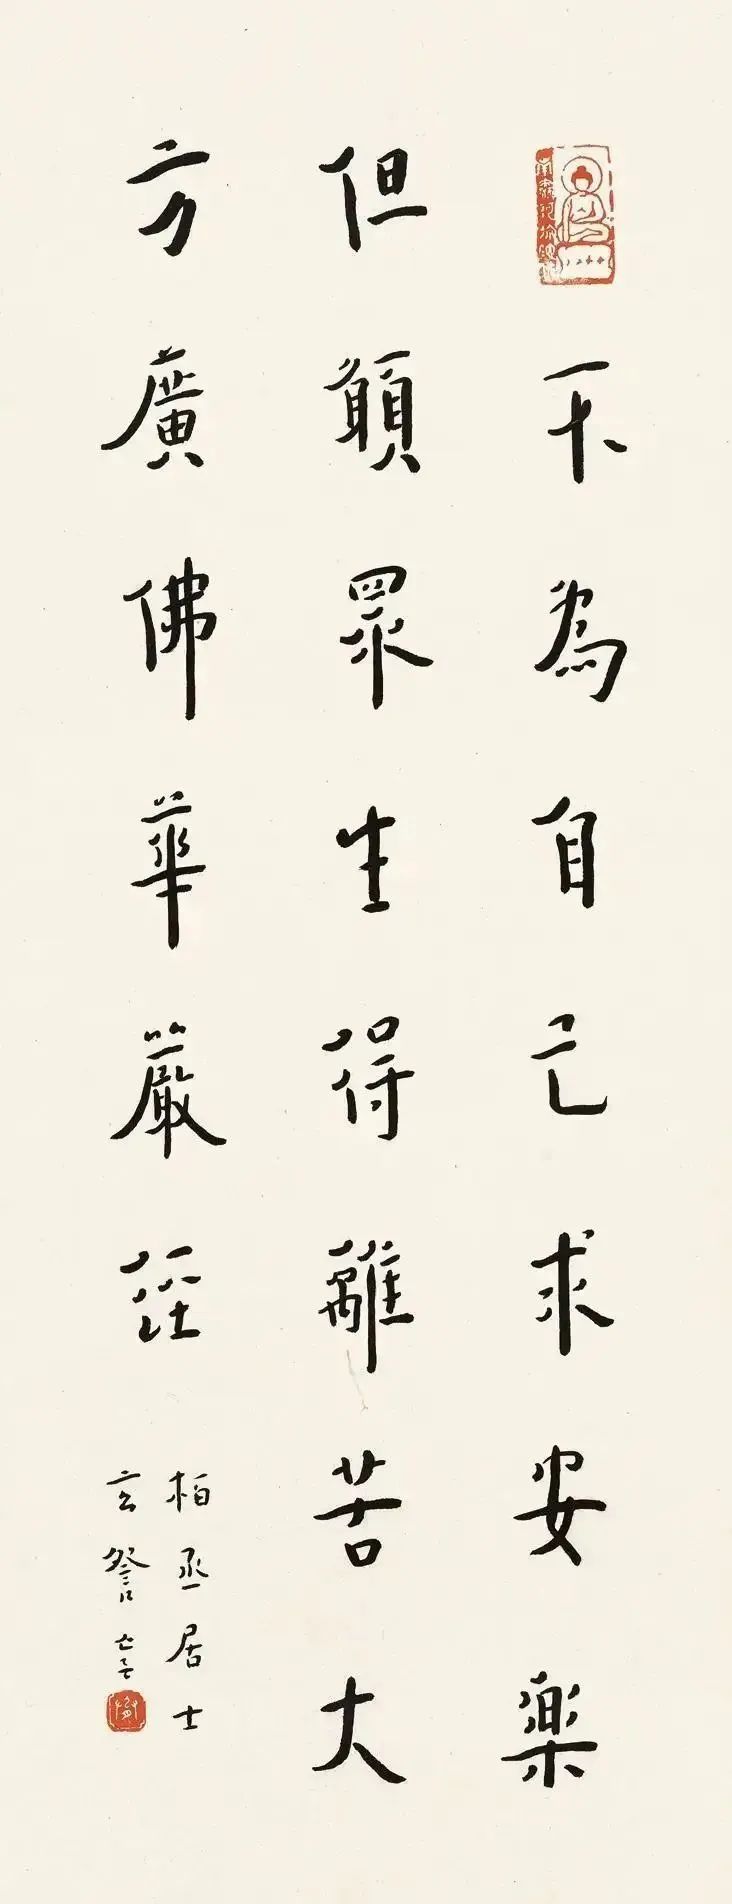 不為自己求安樂
但願眾生得離苦大
方廣佛華嚴經
柏丞居士
玄嬰書